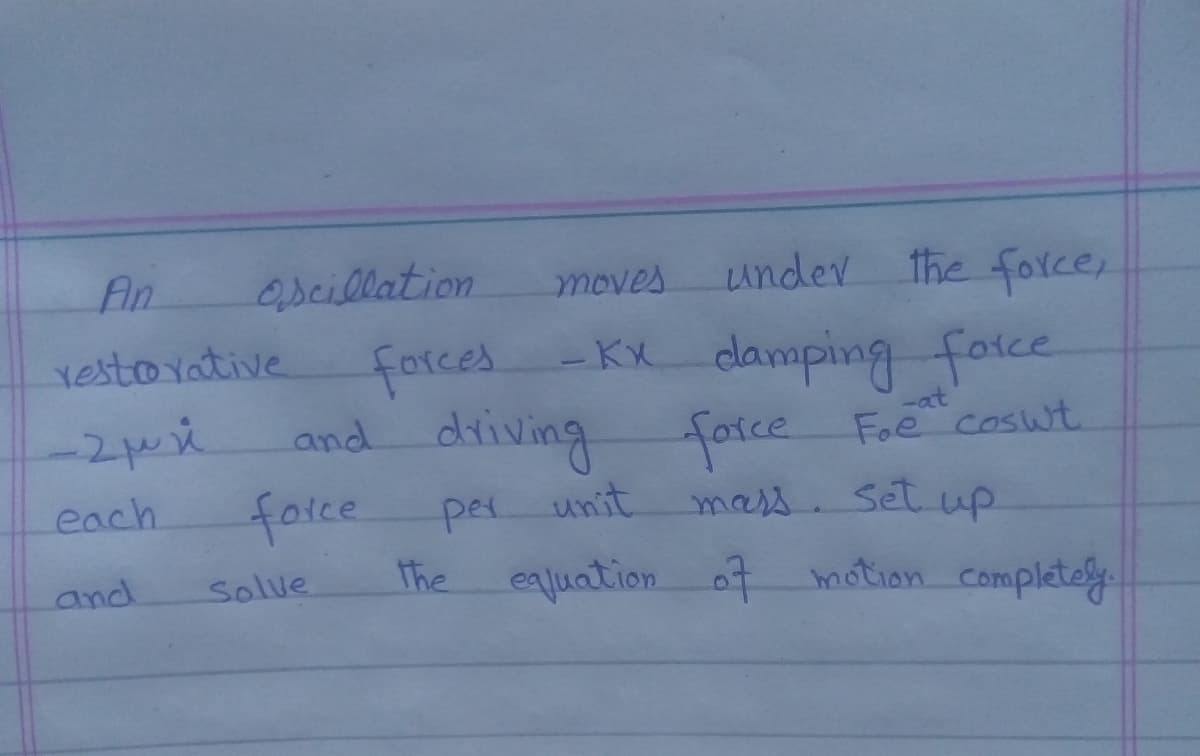 An oscillation moves under the force,
restorative forces -Kx damping force
-2μẋ and driving force F₀e⁻ᵃᵗ coswt
each force per unit mass. Set up
and solve the equation of motion completely.